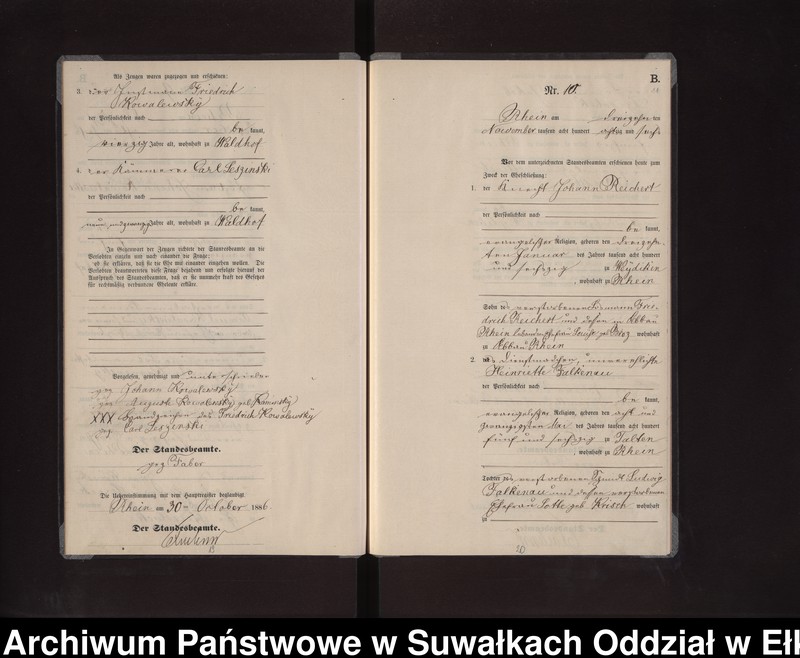 Als Zeugen waren zugezogen und erschienen:
3. der Instmann Friedrich
Kowalewsky
der Persönlichkeit nach
be kannt,
vierzig Jahre alt, wohnhaft zu Waldhof
4. der Kämmerer Carl Leszinski
der Persönlichkeit nach
be kannt,
neun und zwanzig Jahre alt, wohnhaft zu Waldhof
In Gegenwart der Zeugen richtete der Standesbeamte an die
Verlobten einzeln und nach einander die Frage:
ob sie erklären, daß sie die Ehe mit einander eingehen wollen. Die
Verlobten beantworteten diese Frage bejahend und erfolgte hierauf der
Ausspruch des Standesbeamten, daß er sie nunmehr kraft des Gesetzes
für rechtmäßig verbundene Eheleute erkläre.
Vorgelesen, genehmigt und unterschrieben
gez Johann Kowalewsky
gez Auguste Kowalewsky geb Kaminsky
XXX Handzeichen des Friedrich Kowalewsky
gez Carl Leszinski
Der Standesbeamte.
gez Faber
Die Uebereinstimmung mit dem Hauptregister beglaubigt
Rhein am 30ten October 1886
Der Standesbeamte.
B.
Nr. 10.
Rhein am dreizehnten
November tausend acht hundert achtzig und sechs
Vor dem unterzeichneten Standesbeamten erschienen heute zum
Zweck der Eheschließung:
1. der Knecht Johann Reichert
der Persönlichkeit nach
be kannt,
evangelischer Religion, geboren den dreizehn
ten Januar des Jahres tausend acht hundert
und sechszig zu Weydicken
, wohnhaft zu Rhein
Sohn des verstorbenen Frie-
drich Reichert und dessen in Abbau
Rhein geb wohnhaft
zu Abbau Rhein
2. die Dienstmädchen, unverehlichte
Henriette Falkenau
der Persönlichkeit nach
be kannt,
evangelischer Religion, geboren den acht und
zwanzigsten Mai des Jahres tausend acht hundert
fünf und sechszig zu Talten
, wohnhaft zu Rhein
Tochter des verstorbenen Ludwig
Falkenau und dessen verstorbenen
Ehefrau Lotte geb Krisch wohnhaft
zu
20
Archiwum Państwowe w Suwałkach Oddział w Ełk